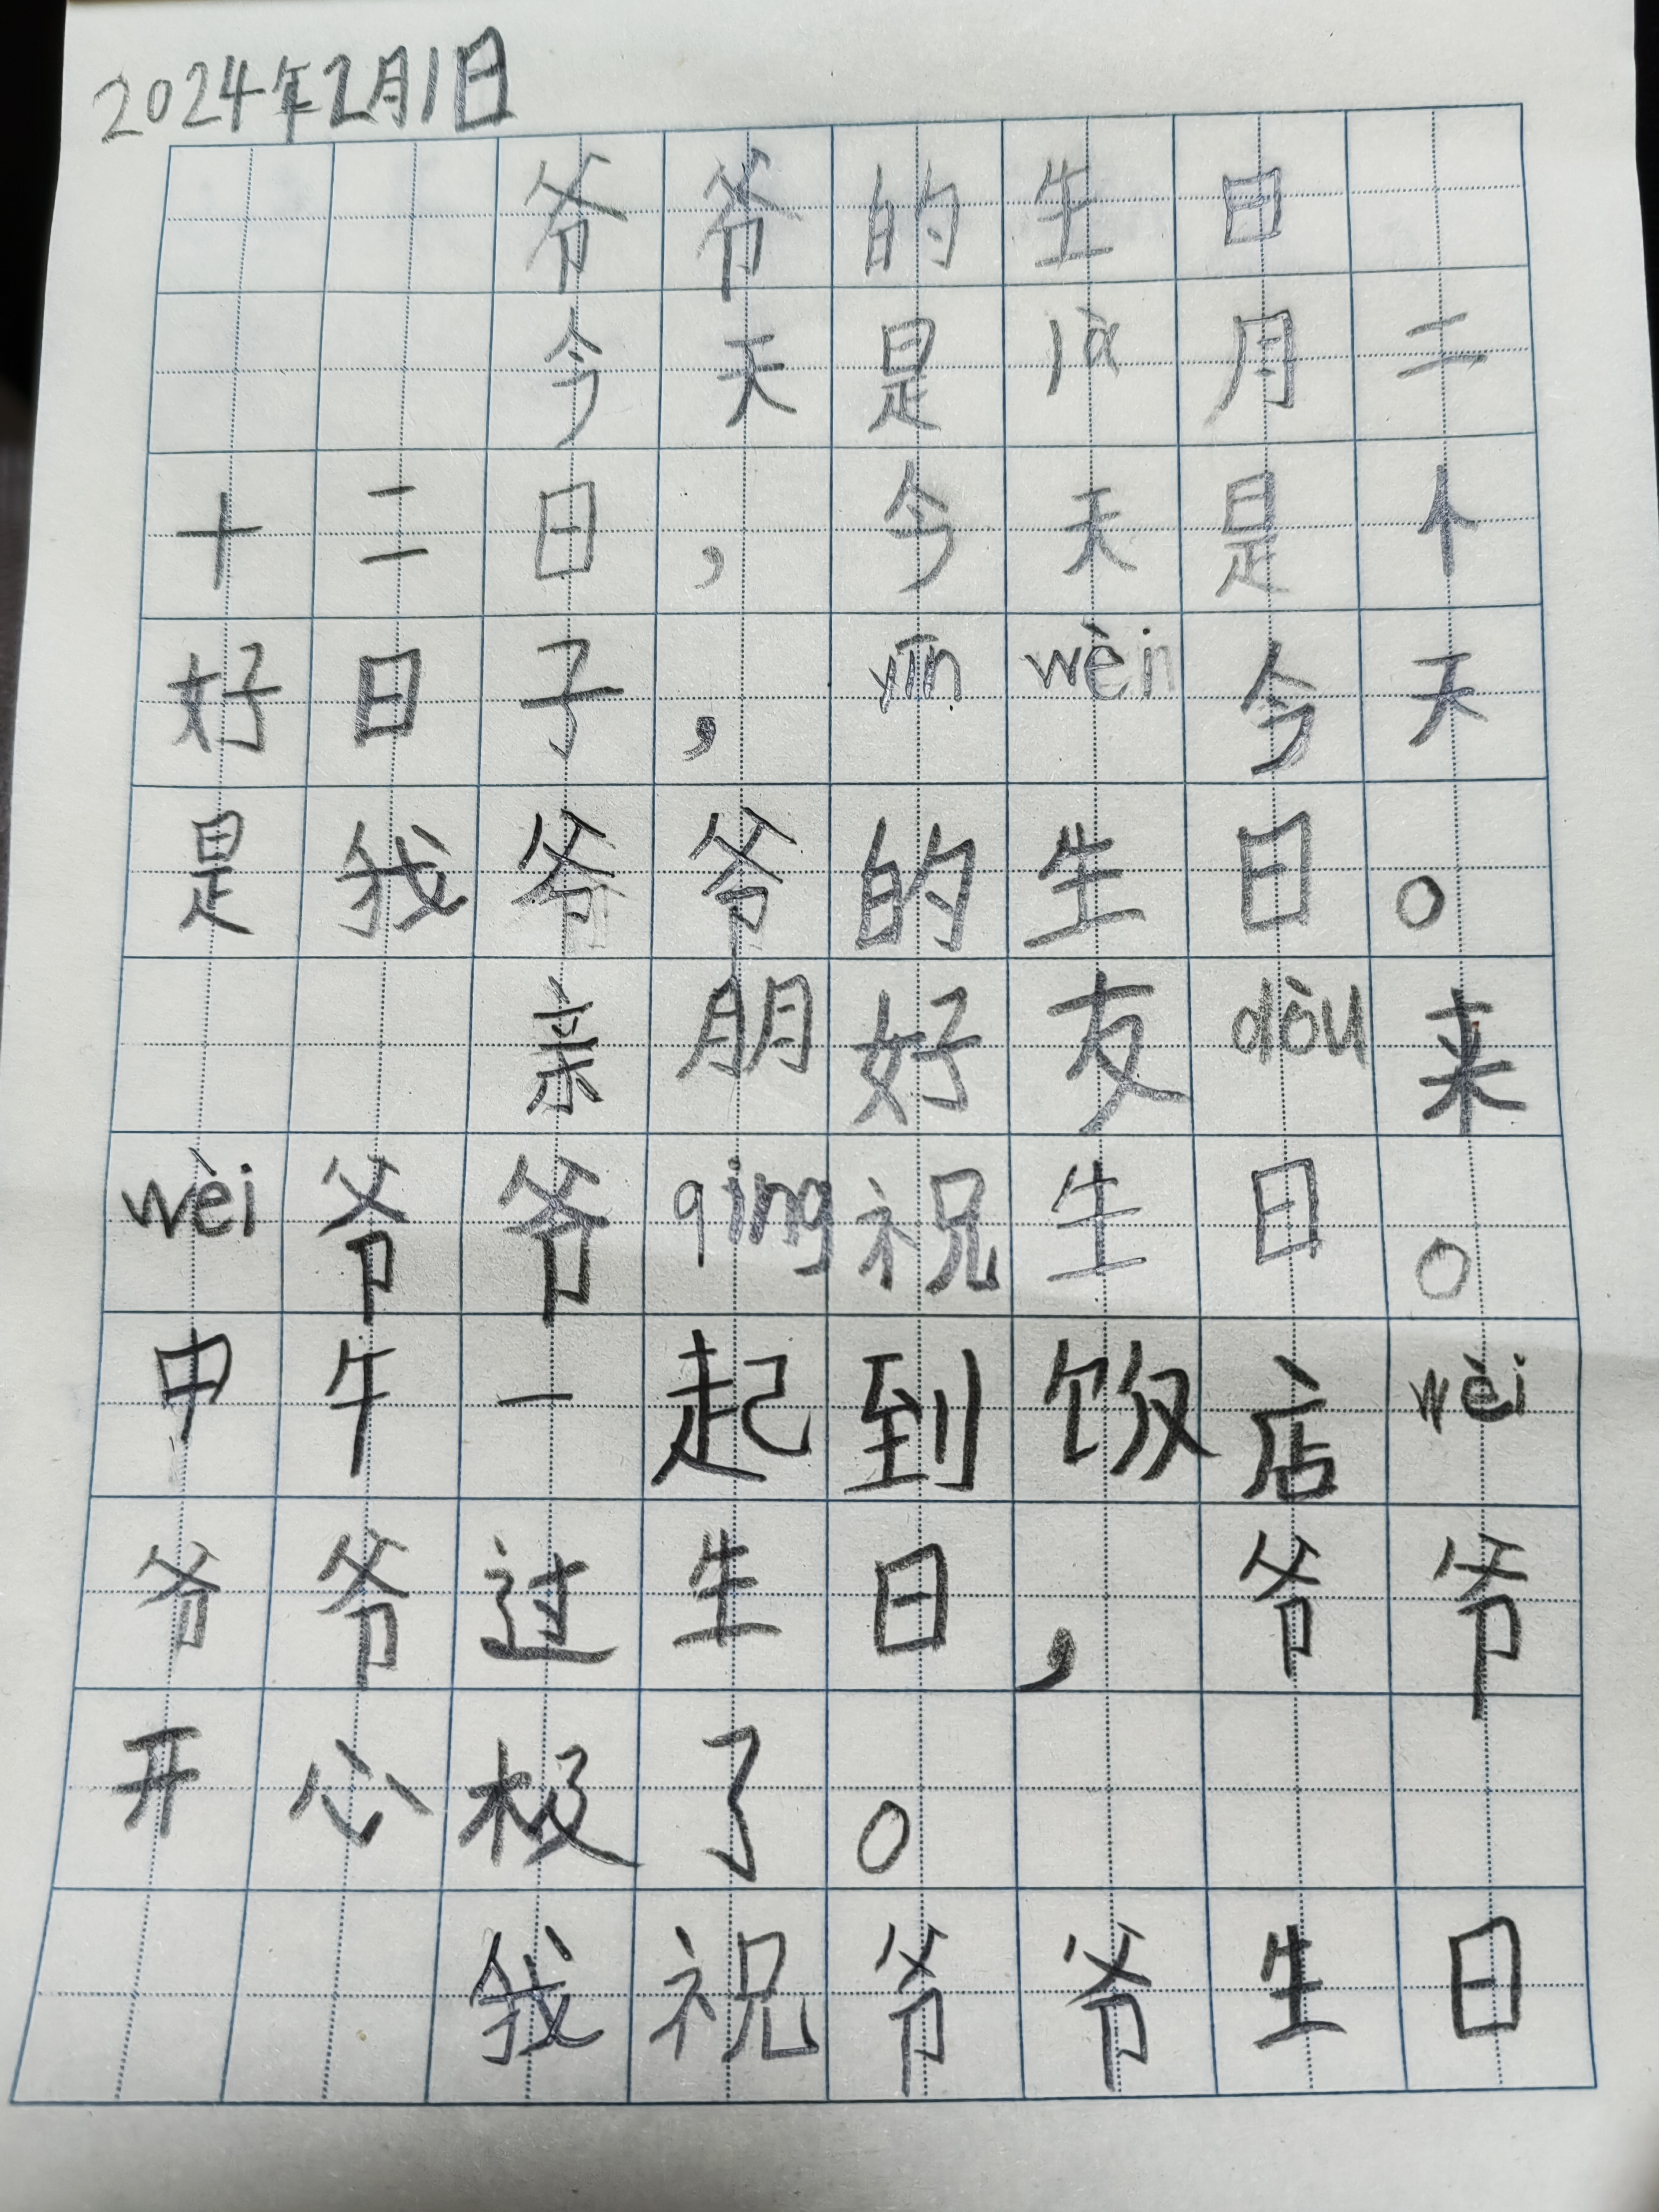 2024年2月1日
爷爷的生日
今天是là月二
十二日，今天是个
好日子，yīn wèi今天
是我爷爷的生日。
亲朋好友dōu来
wèi爷爷qìng祝生日。
中午一起到饭店wèi
爷爷过生日，爷爷
开心极了。
我祝爷爷生日